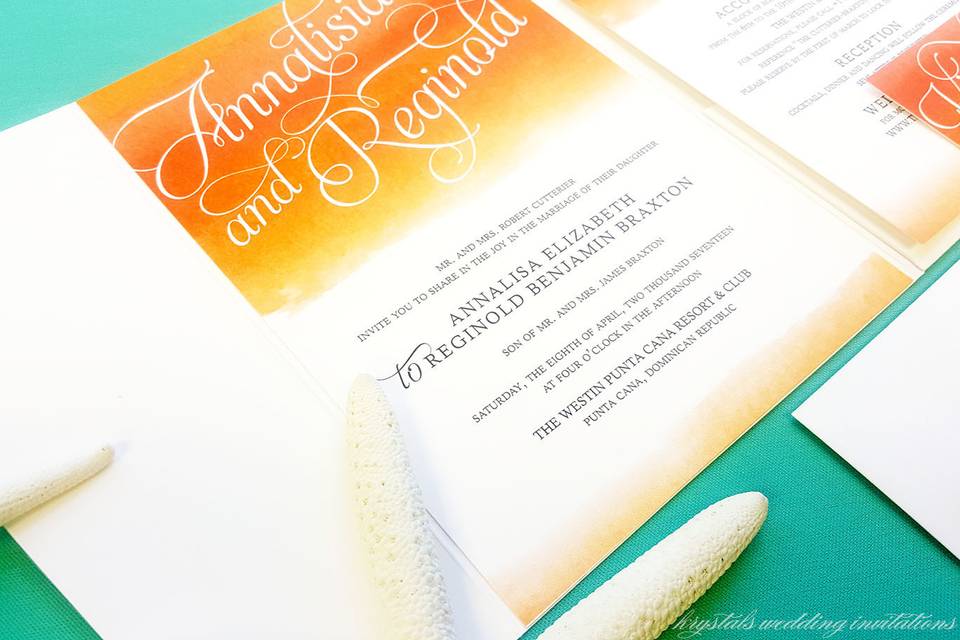 Annalisa
and Reginold
MR. AND MRS. ROBERT CUTTERIER
INVITE YOU TO SHARE IN THE JOY IN THE MARRIAGE OF THEIR DAUGHTER
ANNALISA ELIZABETH
to REGINOLD BENJAMIN BRAXTON
SON OF MR. AND MRS. JAMES BRAXTON
SATURDAY, THE EIGHTH OF APRIL, TWO THOUSAND SEVENTEEN
AT FOUR O'CLOCK IN THE AFTERNOON
THE WESTIN PUNTA CANA RESORT & CLUB
PUNTA CANA, DOMINICAN REPUBLIC
A BLOCK OF
THE WESTIN
FROM THE 6TH TO THE
FOR RESERVATIONS, PLEASE CALL
REFERENCE "THE CUTTERIER-BRAXTON
PLEASE RESERVE BY THE FIRST OF MARCH TO LOCK
RECEPTION
COCKTAILS, DINNER AND DANCING WILL FOLLOW THE
FOR
WWW.
krystals wedding invitations